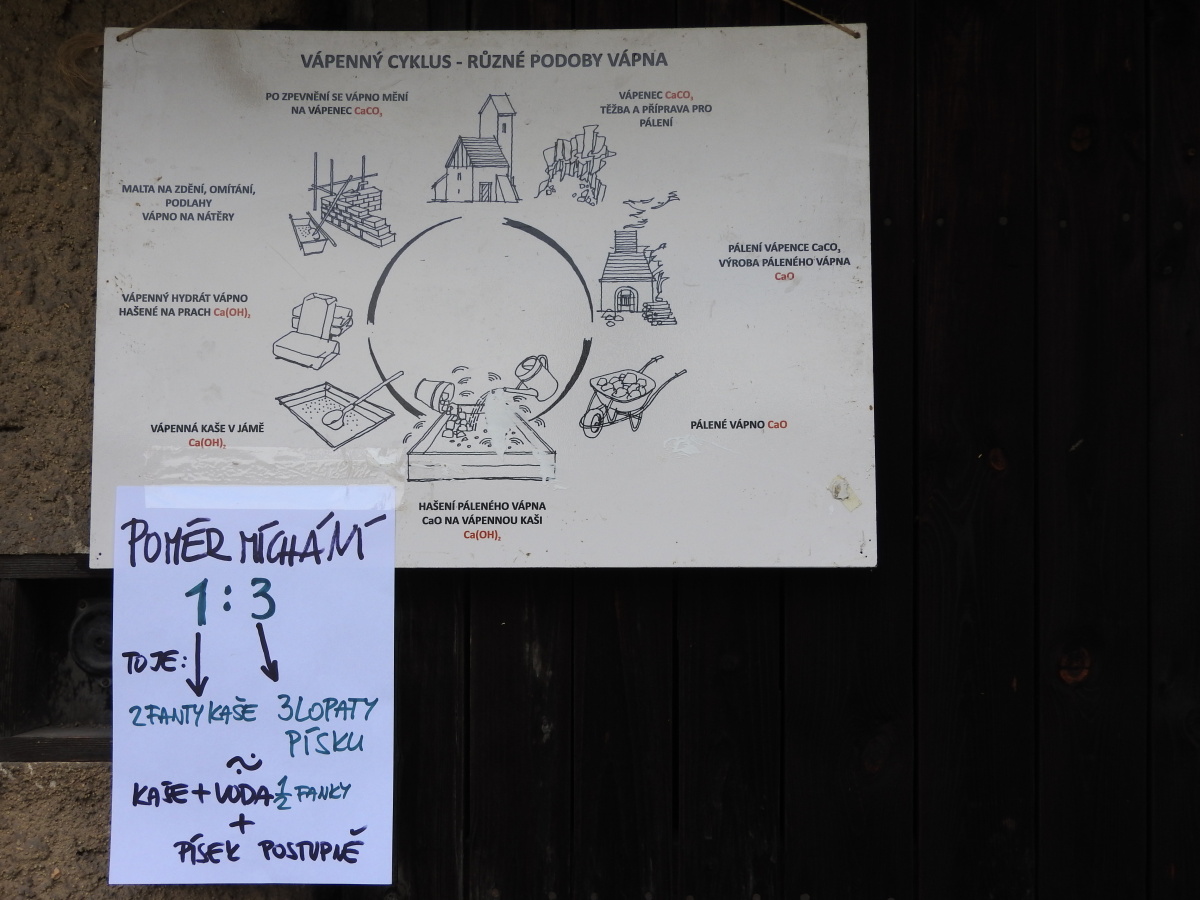 VÁPENNÝ CYKLUS - RŮZNÉ PODOBY VÁPNA
PO ZPEVNĚNÍ SE VÁPNO MĚNÍ
NA VÁPENEC CaCO₃
VÁPENEC CaCO₃
TĚŽBA A PŘÍPRAVA PRO
PÁLENÍ
MALTA NA ZDĚNÍ, OMÍTÁNÍ,
PODLAHY
VÁPNO NA NÁTĚRY
PÁLENÍ VÁPENCE CaCO₃
VÝROBA PÁLENÉHO VÁPNA
CaO
VÁPENNÝ HYDRÁT VÁPNO
HAŠENÉ NA PRACH Ca(OH)₂
VÁPENNÁ KAŠE V JÁMĚ
Ca(OH)₂
PÁLENÉ VÁPNO CaO
HAŠENÍ PÁLENÉHO VÁPNA
CaO NA VÁPENNOU KAŠI
Ca(OH)₂
POMĚR MÍCHÁNÍ
1 : 3
TO JE:
2 FANTY KAŠE 3 LOPATY
PÍSKU
KAŠE + VODA ½ FANKY
+
PÍSEK POSTUPNĚ